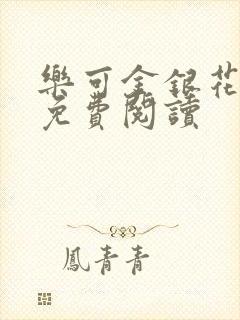 樂可金銀花
免費閱讀
鳳青青